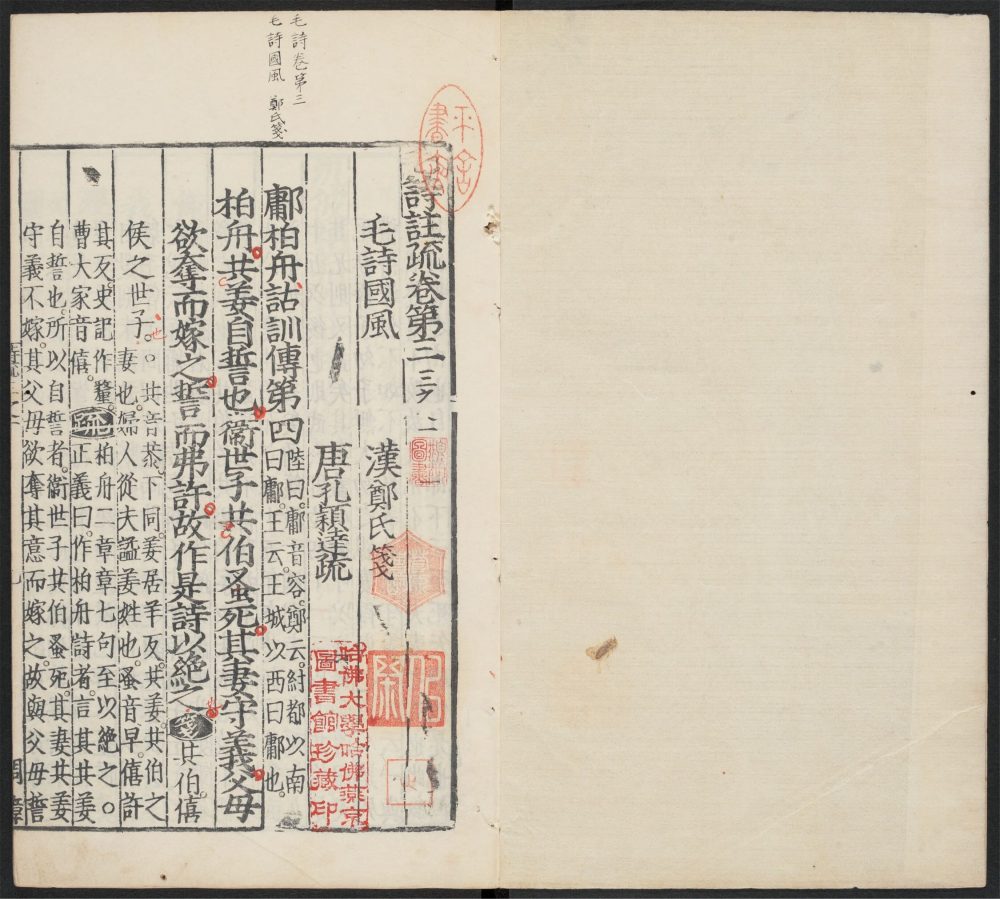 毛詩卷第三
毛詩國風 鄭氏箋
平
詩註疏卷第三 三 二
漢鄭氏箋
毛詩國風
唐孔穎達疏
哈佛大學哈佛燕京
圖書館珍藏印
鄘柏舟詁訓傳第四 陸曰。鄘音容。鄭云。紂都以南
曰鄘。王云。王城以西曰鄘也。
柏舟。共姜自誓也。衞世子共伯蚤死。其妻守義。父母
欲奪而嫁之。誓而弗許。故作是詩以絶之。箋 共伯。僖
侯之世子。○共音恭。下同。姜居羊反。共姜。共伯之
妻也。婦人從夫諡。姜姓也。蚤音早。僖許
其反。史記作釐。疏 柏舟二章章七句至以絶之。○
曹大家音僖。正義曰。作柏舟詩者。言其共姜
自誓也。所以自誓者。衞世子共伯蚤死。其妻共姜
守義不嫁。其父母欲奪其意而嫁之。故與父母誓